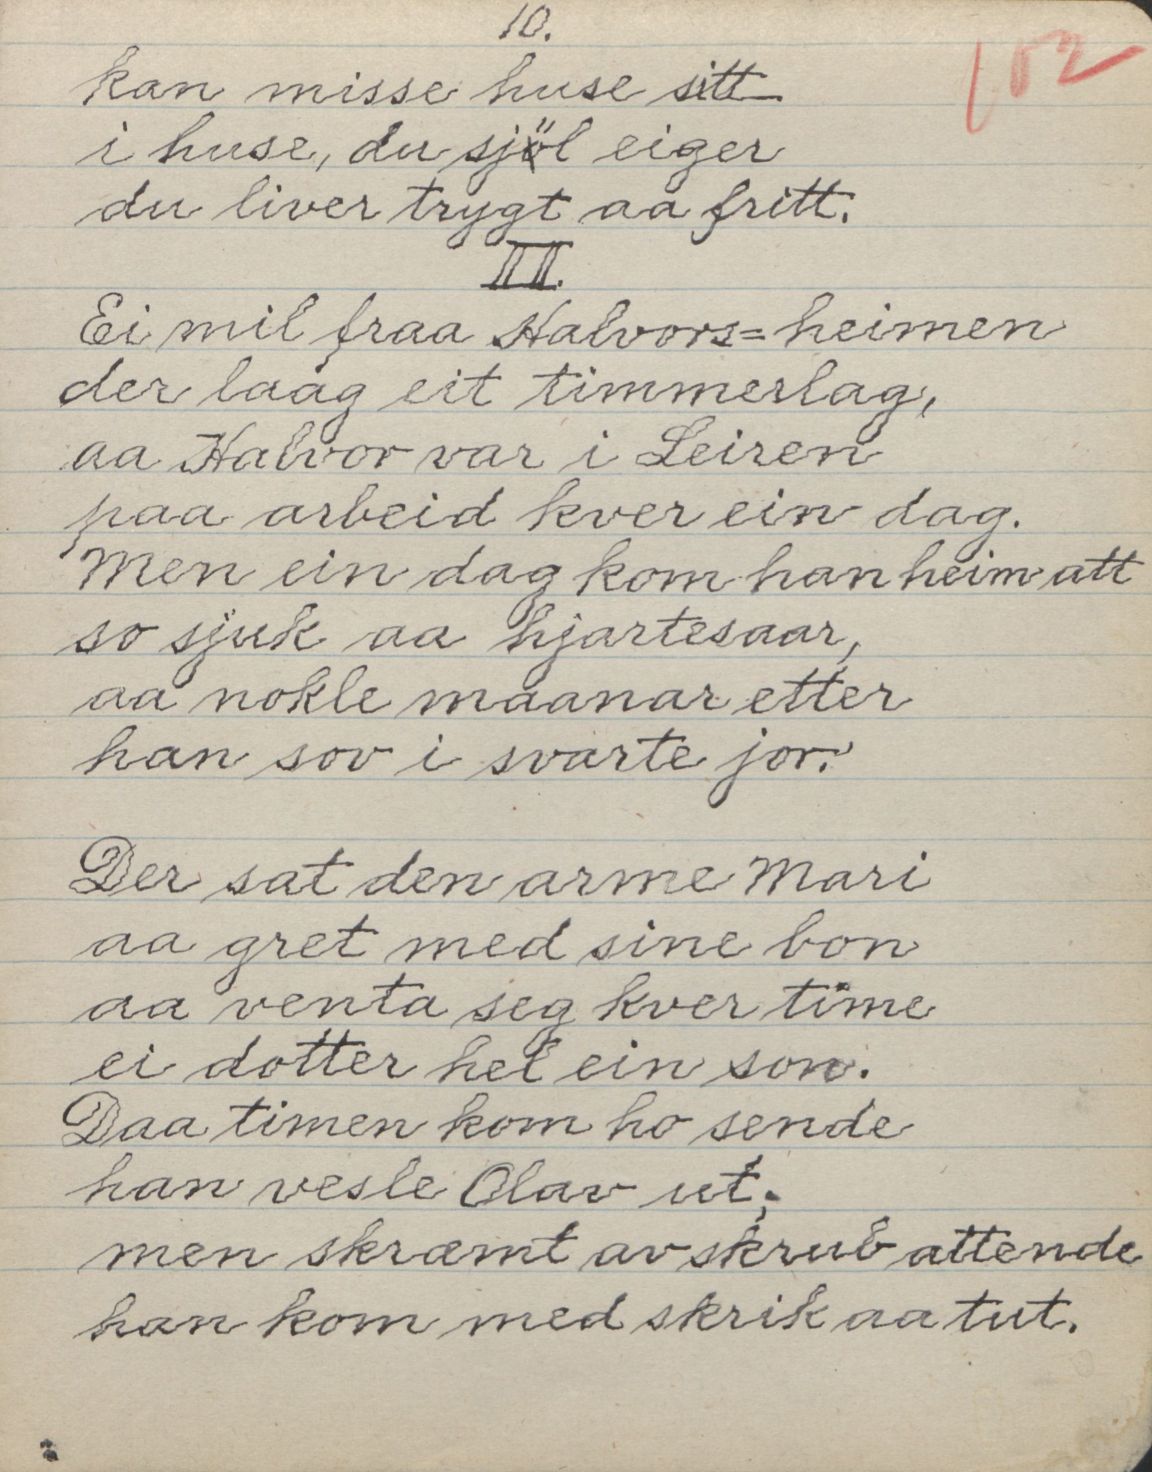 10.
102
kan misse huse sitt
i huse, du sjöl eiger
du liver trygt aa fritt.
III.
Ei mil fraa Halvors=heimen
der laag eit timmerlag,
aa Halvor var i Leiren
paa arbeid kver ein dag.
Men ein dag kom han heim att
so sjuk aa hjartesaar,
aa nokle maanar etter
han sov i svarte jor.
Der sat den arme Mari
aa gret med sine bon
aa venta seg kver time
ei dotter hel ein son.
Daa timen kom ho sende
han vesle Olav ut;
men skræmt av skrub attende
han kom med skrik aa tut.